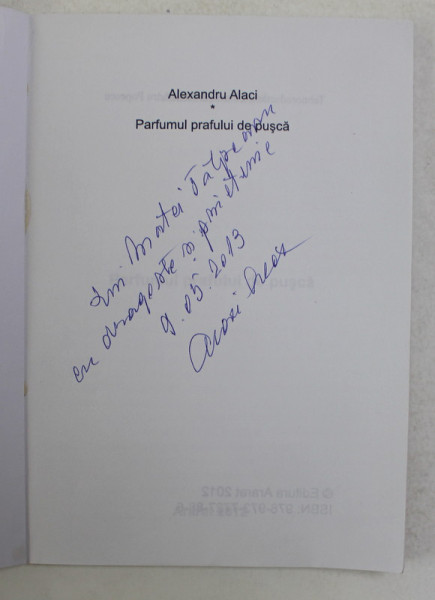 Alexandru Alaci
*
Parfumul prafului de pușcă
Lui Matei
cu dragoste și prietenie
9.05.2013
© Editura Ararat 2012